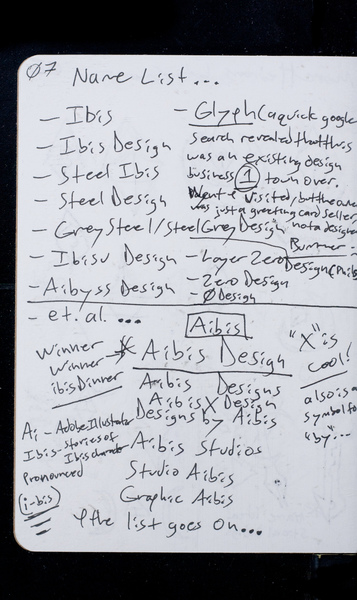 Ø7
Name List...
- Ibis
- Ibis Design
- Steel Ibis
- Steel Design
- Grey Steel/Steel Grey Design
- Ibisu Design
- Aibyss Design
- et. al. ...
- Glyph (a quick google
search revealed that this
was an existing design
business 1 town over.
Went & Visited, but the
was just a greeting card seller,
not a designer
Bummer -
- Layer Zero Design
- Zero Design
- Ø Design
Aibis
Winner
Winner
ibis Dinner
* Aibis Design
Aibis Designs
AibisX Design
Designs by Aibis
Aibis Studios
Studio Aibis
Graphic Aibis
& the list goes on...
"X" is
cool!
also is a
symbol fo
"by"...
Ai - Adobe Illustrator
Ibis - stories of
Ibis
pronounced
(i-bis)